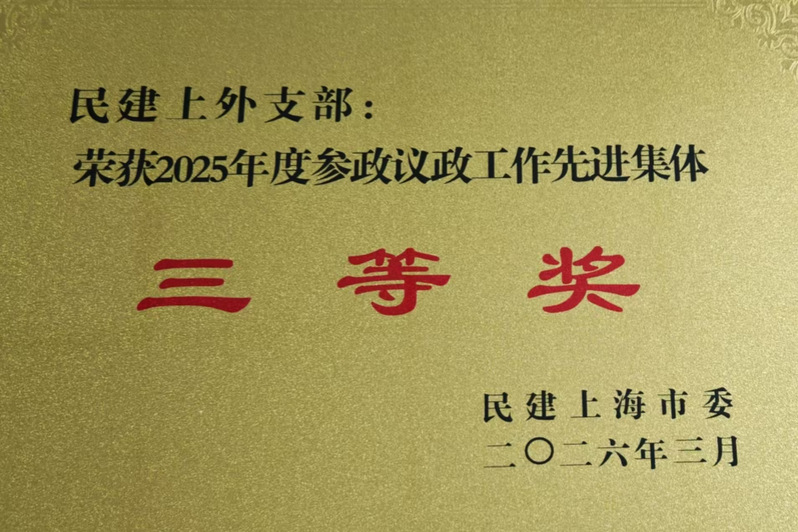 民建上外支部:
荣获2025年度参政议政工作先进集体
三等奖
民建上海市委
二〇二六年三月